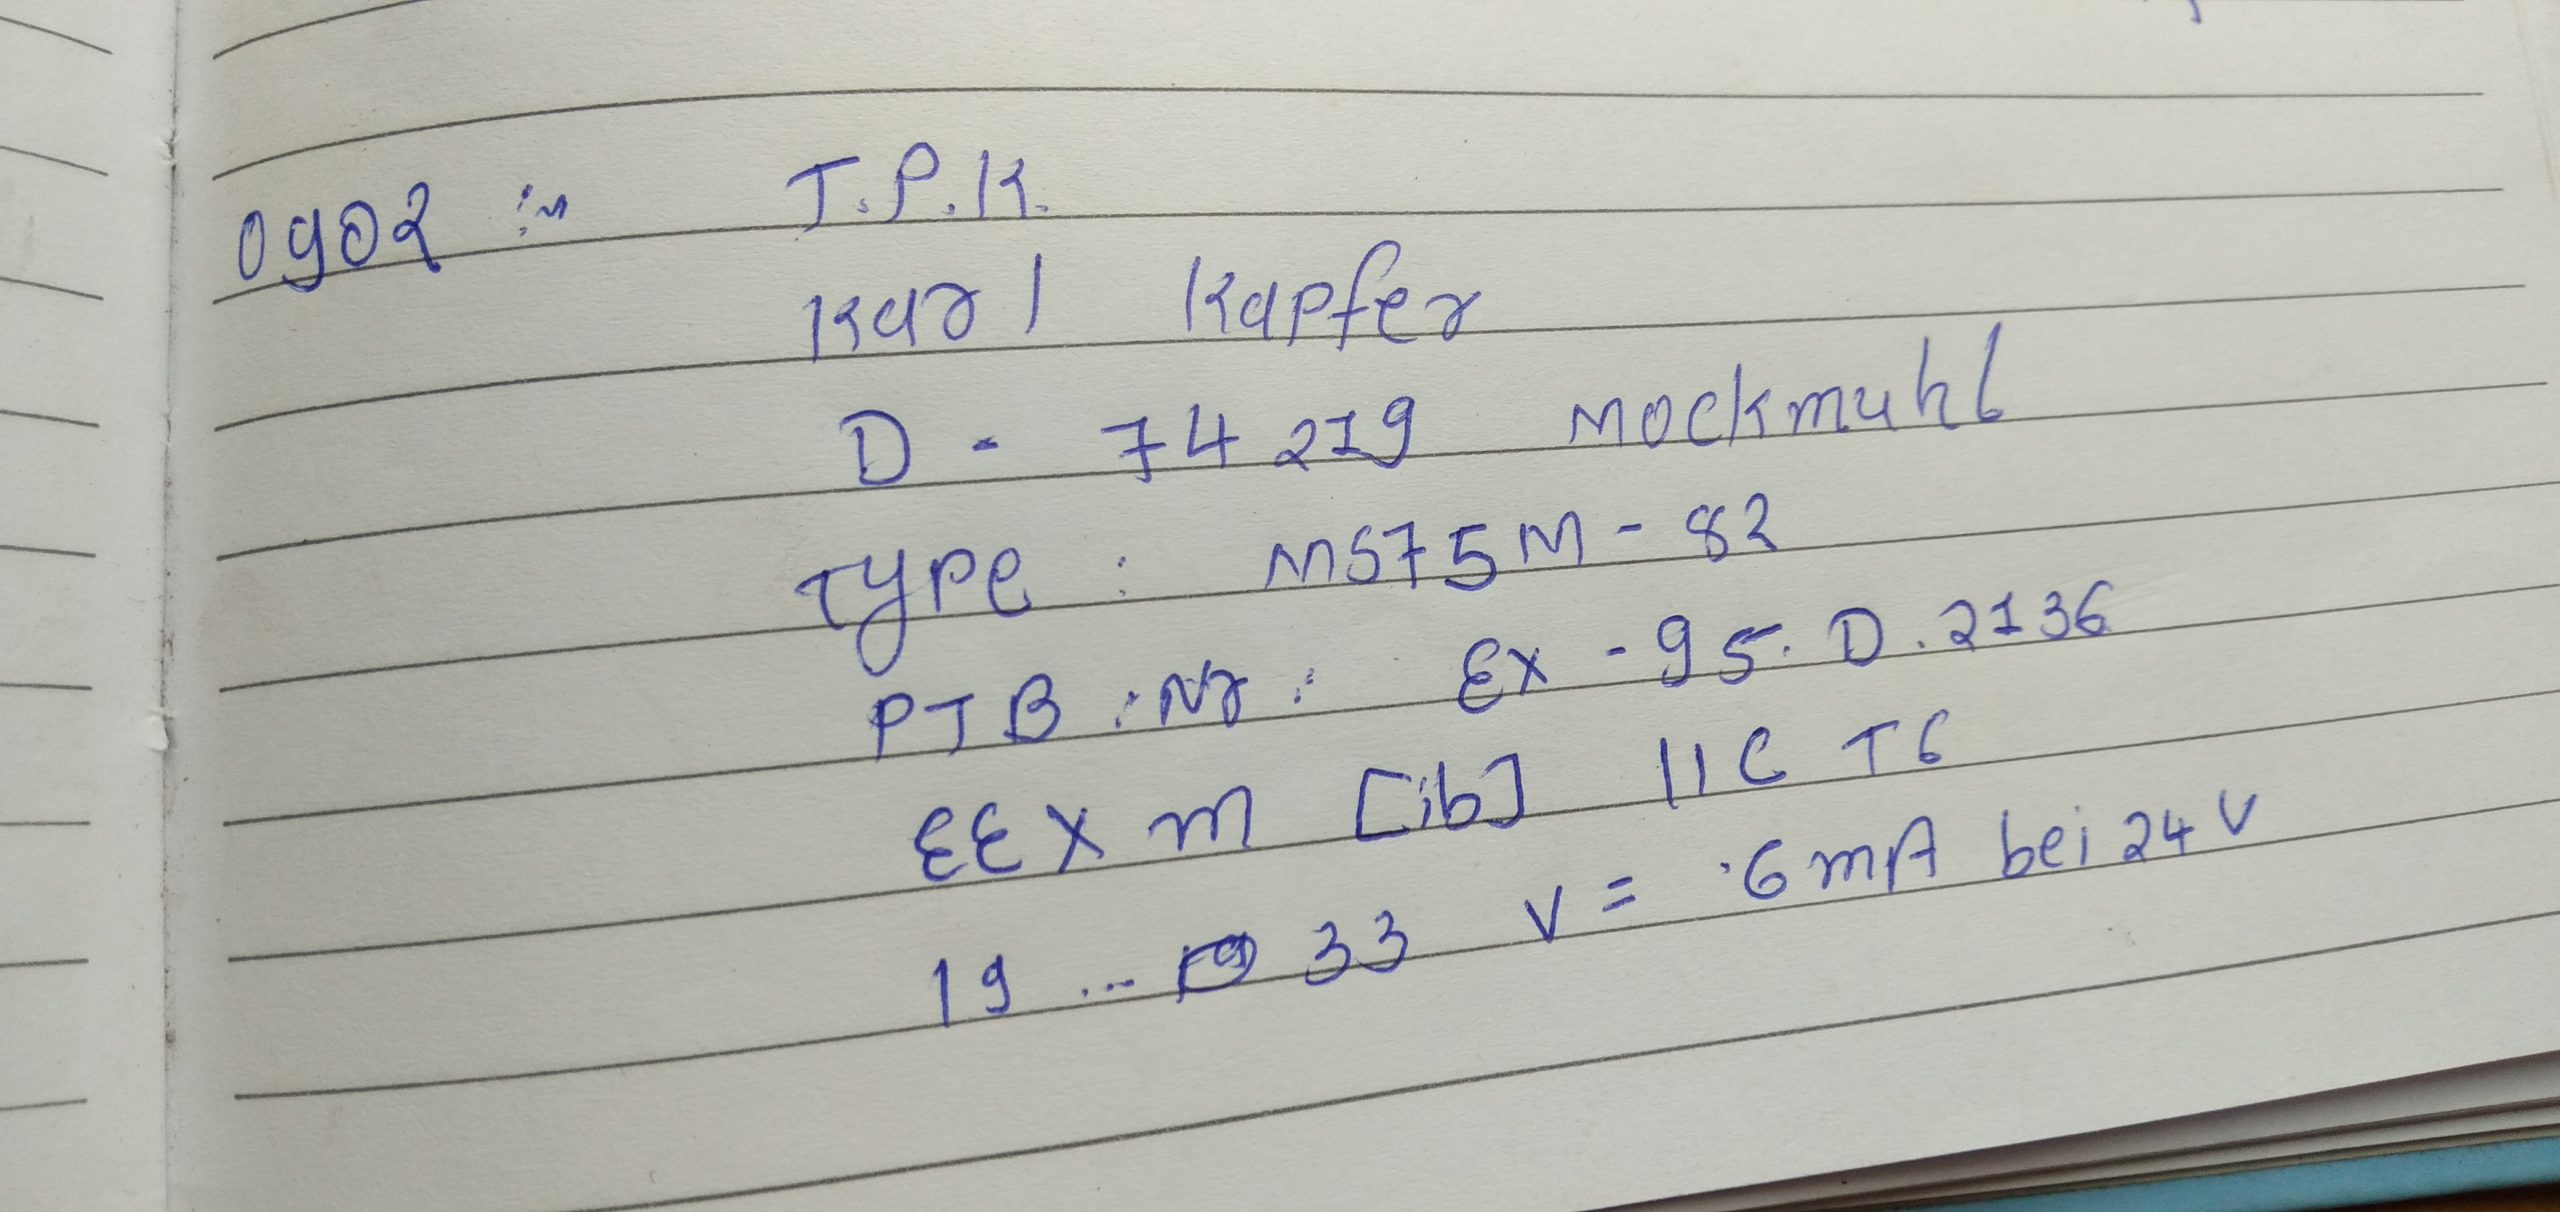 0902 :- T.P.K.
Karl Kapfer
D - 74 219 Mockmuhl
Type : MS75M - 82
PTB : Nr : Ex - 95. D. 2136
EEX m [ib] IIC T6
19 ... 33 V = .6 mA bei 24 V